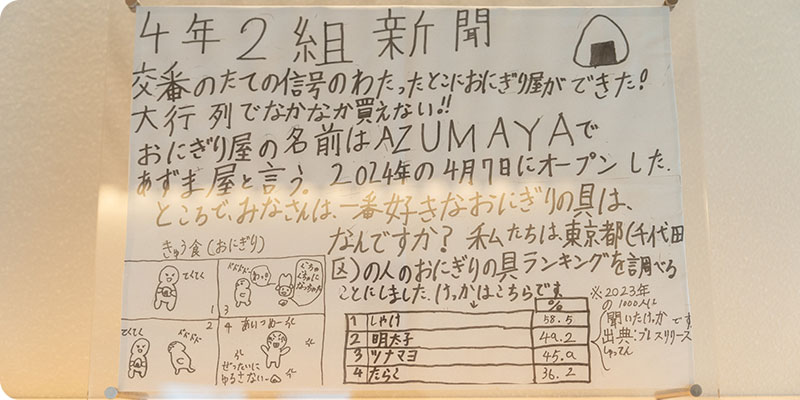 4年2組新聞
交番のたての信号のわたったとこにおにぎり屋ができた!
大行列でなかなか買えない!!
おにぎり屋の名前はAZUMAYAで
あずま屋と言う。2024年の4月7日にオープンした.
ところで、みなさんは、一番好きなおにぎりの具は、
なんですか? 私たちは、東京都(千代田
区)の人のおにぎりの具ランキングを調べる
ことにしました.けっかはこちらです
きゅう食(おにぎり)
てくてく
1
2
てくてく
3
4 あいつめー
ぜったいに
ゆるさないー
%
1 しゃけ 58.5
2 明太子 49.2
3 ツナマヨ 45.9
4 たらこ 36.2
※2023年
の1000人に
聞いたけっかです
出典:プレスリリース
しゅってん